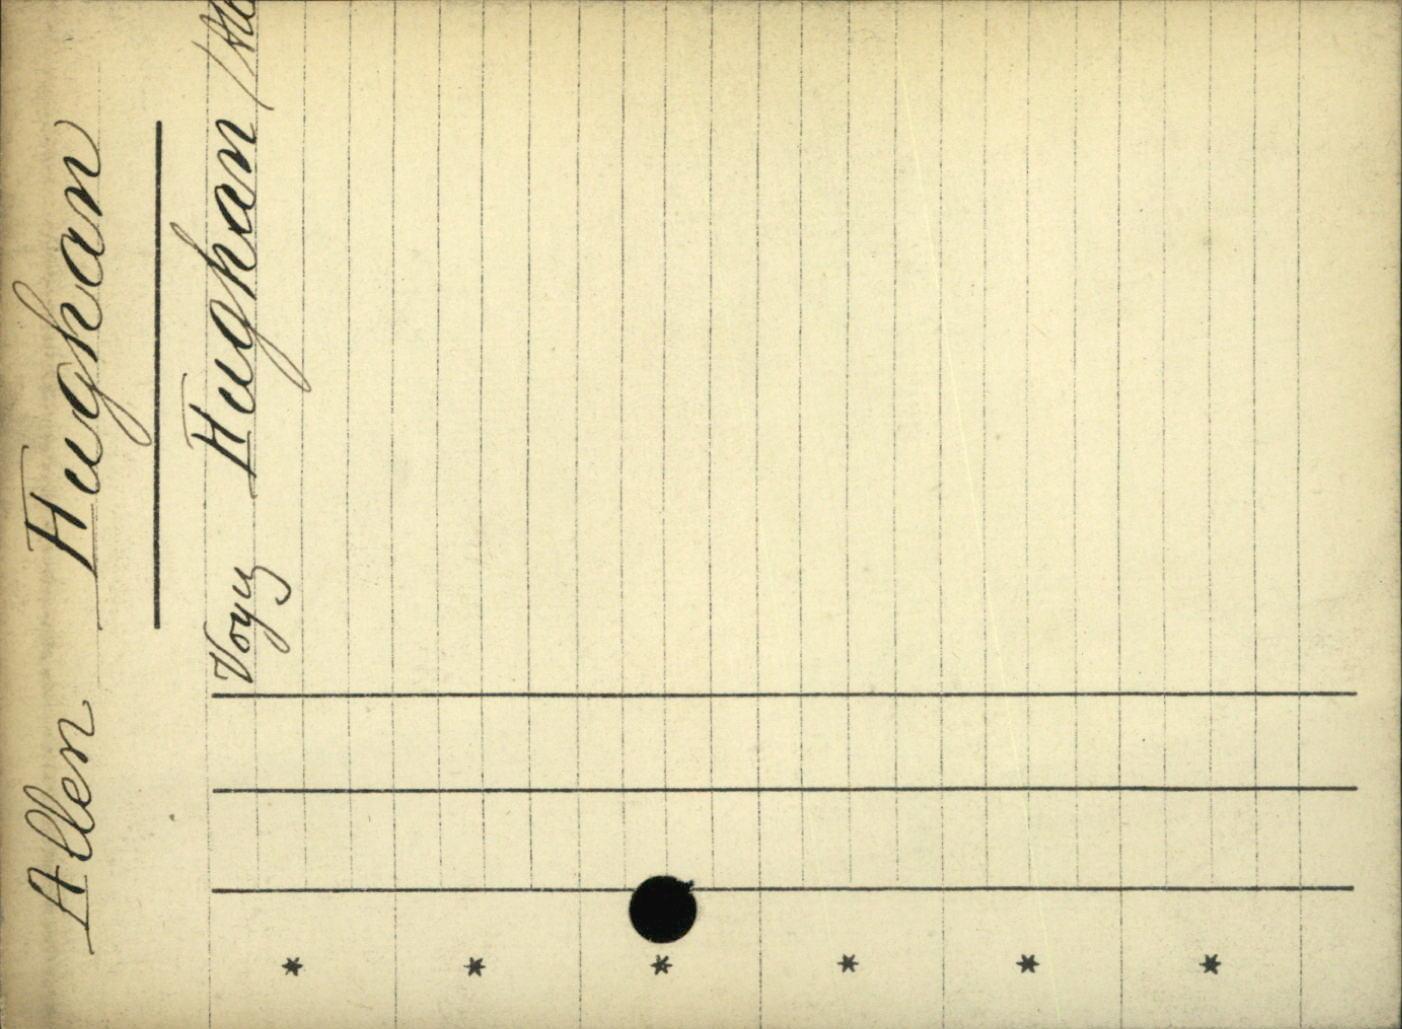 Allen Hughan
Voyez Hughan (Alle
*
*
*
*
*
*